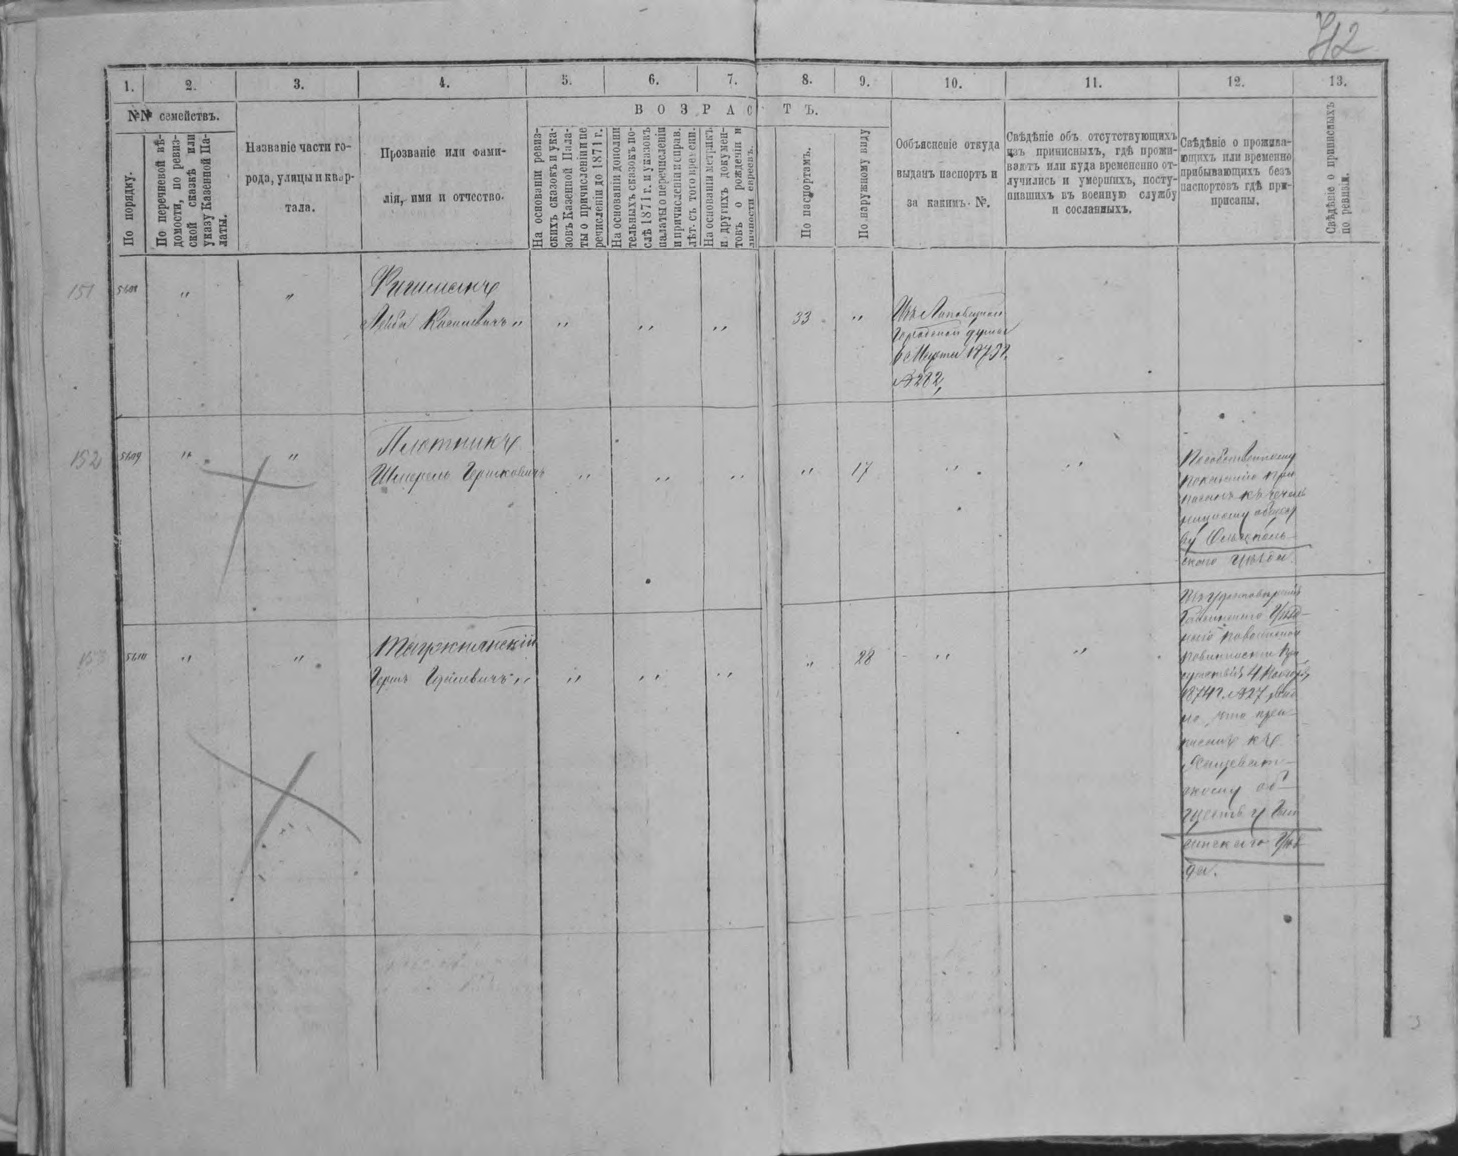 742
1.
2.
3.
4.
5.
6.
7.
8.
9.
10.
11.
12.
13.
№№ семействъ.
ВОЗРАСТЪ.
По порядку.
По перечневой вѣ-
домости, по ревиз-
ской сказкѣ или
указу Казенной Па-
латы.
Названіе части го-
рода, улицы и квар-
тала.
Прозваніе или фами-
лія, имя и отчество.
На основаніи ревиз-
скихъ сказокъ и ука-
зовъ Казенной Пала-
ты о причисленіи и пе
речисленіи до 1871 г.
На основаніи дополни
тельныхъ сказокъ по-
слѣ 1871 г. и указовъ
палаты о перечисленіи
и причисленіи и справ.
лѣт. съ того времени.
На основаніи метрикъ
и другихъ докумен-
товъ о рожденіи и
личности евреевъ.
По паспортамъ.
По наружному виду
Объясненіе откуда
выданъ паспортъ и
за какимъ №.
Свѣдѣніе объ отсутствующихъ
изъ приписныхъ, гдѣ прожи-
ваютъ или куда временно от-
лучились и умершихъ, посту-
пившихъ въ военную службу
и сосланныхъ.
Свѣдѣніе о прожива-
ющихъ или временно
прибывающихъ безъ
паспортовъ гдѣ при-
писаны.
Свѣдѣніе о приписныхъ
по ревизіи.
151
5608
Лейба
33
Городской думы
6 Марта
№ 282
152
5609
Плотникъ
Шмерель Гершковичъ
17
По собственному
показанію при
писанъ къ
обще
ву Ольгополь-
скаго Уѣзда.
153
5610
Гершъ
28
4 Ноября
1874 г. № 27 вид
но, что при-
писанъ къ
Хащеват-
скому об-
ществу Гай
синскаго Уѣз
да.